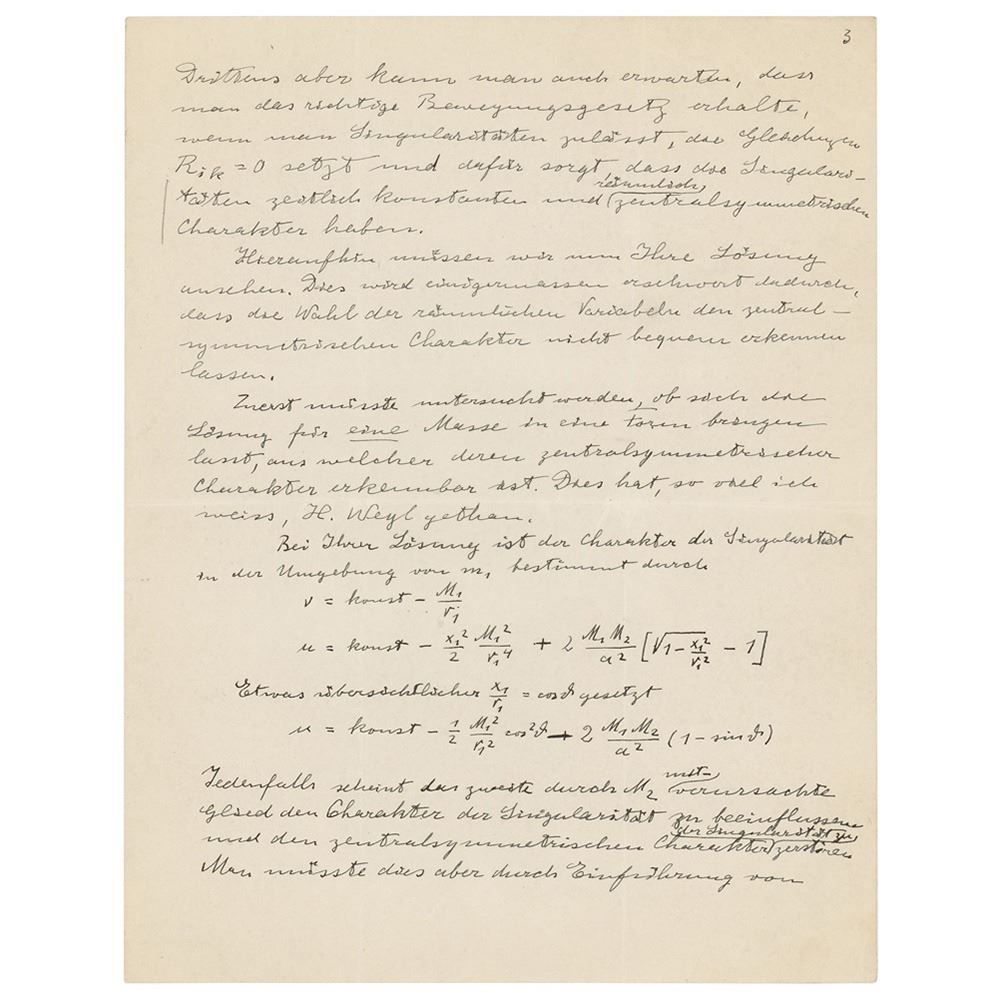 3
Drittens aber kann man auch erwarten, dass
man das richtige Bewegungsgesetz erhalte,
wenn man Singularitäten zulässt, die Gleichungen
R_ik = 0 setzt und dafür sorgt, dass die Singulari-
räumlich
täten zeitlich konstanten und zentralsymmetrischen
Charakter haben.
Hieraufhin müssen wir nun Ihre Lösung
ansehen. Dies wird einigermassen erschwert dadurch,
dass die Wahl der räumlichen Variabeln den zentral-
symmetrischen Charakter nicht bequem erkennen
lassen.
Zuerst müsste untersucht werden, ob sich die
Lösung für eine Masse in eine Form bringen
lasst, aus welcher deren zentralsymmetrischer
Charakter erkennbar ist. Dies hat, so viel ich
weiss, H. Weyl gethan.
Bei Ihrer Lösung ist der Charakter der Singularität
in der Umgebung von m₁ bestimmt durch
ν = konst − M₁/r₁
u = konst − x₁²/2 M₁²/r₁⁴ + 2 M₁ M₂/a² [√(1 − x₁²/r₁²) − 1]
Etwas übersichtlicher x₁/r₁ = cos ϑ gesetzt
u = konst − 1/2 M₁²/r₁² cos²ϑ + 2 M₁ M₂/a² (1 − sin ϑ)
mit-
Jedenfalls scheint das zweite durch M₂ verursachte
Glied den Charakter der Singularität zu beeinflussen
der Singularität zu
und den zentralsymmetrischen Charakter zerstören
Man müsste dies aber durch Einführung von